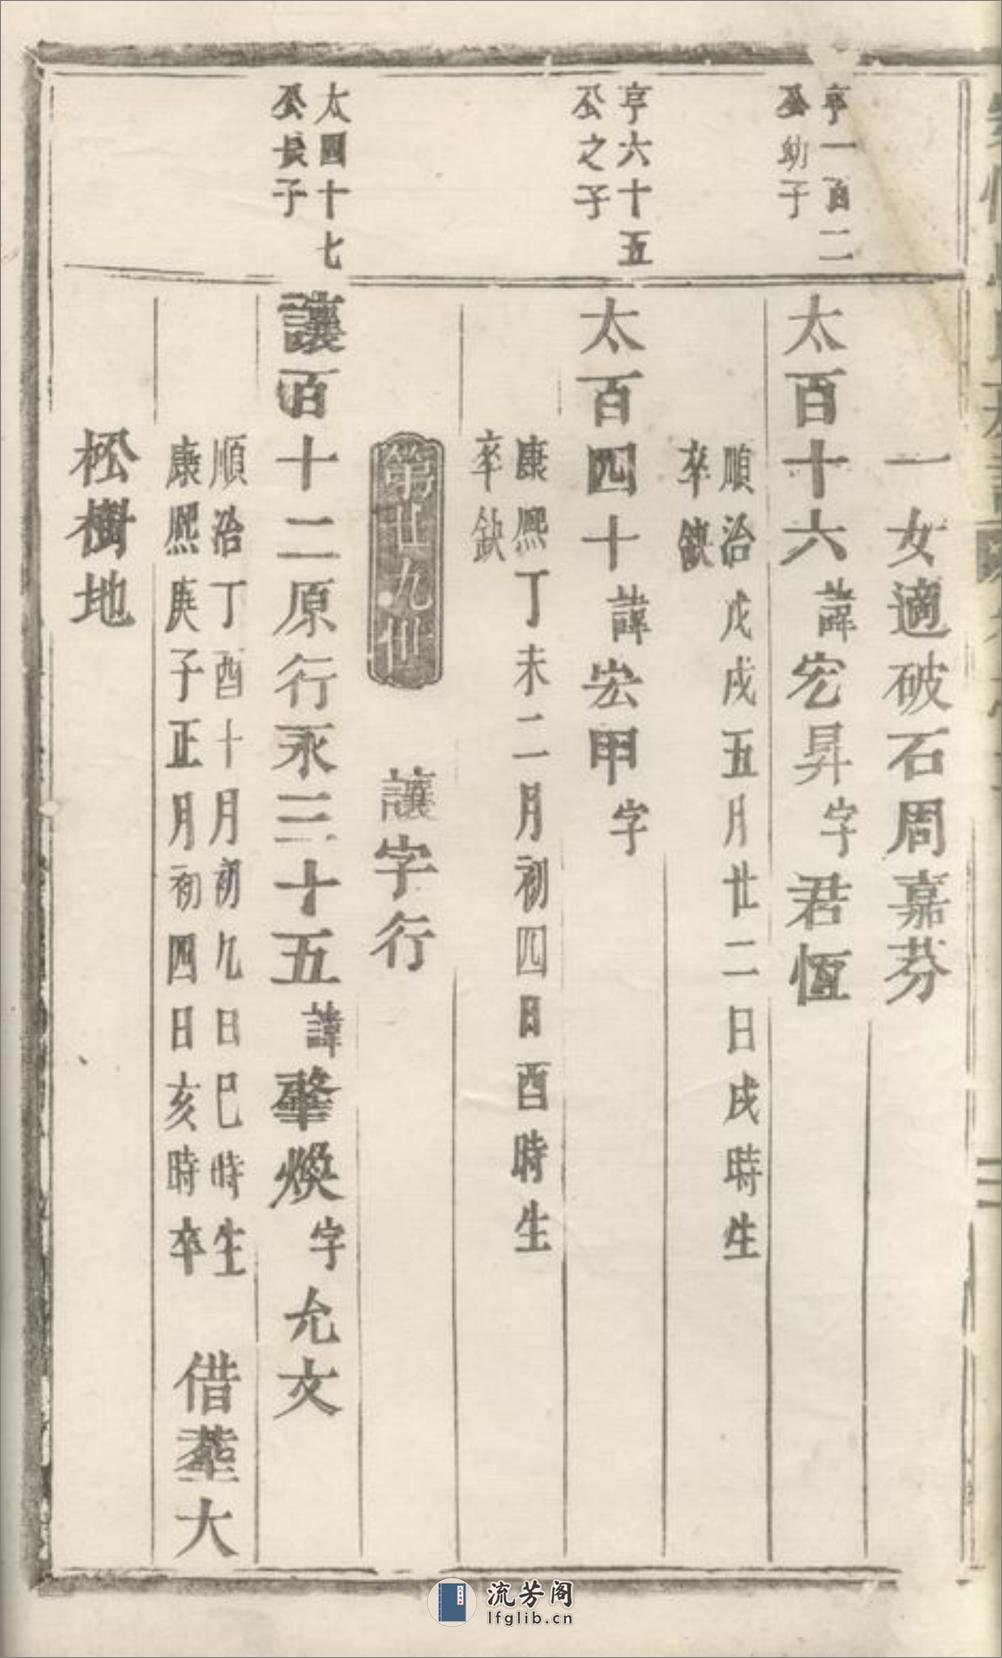 一女適破石周嘉芬
亨一百二
公幼子
太百十六諱宏昇字君恆
順治戊戌五月廿二日戌時生
卒缺
亨六十五
公之子
太百四十諱宏甲字
康熙丁未二月初四日酉時生
卒缺
第廿九世 讓字行
太四十七
公長子
讓百十二原行永三十五諱肇煥字允文
順治丁酉十月初九日巳時生
康熙庚子正月初四日亥時卒
借葬大
松樹地
流芳阁
lfglib.cn